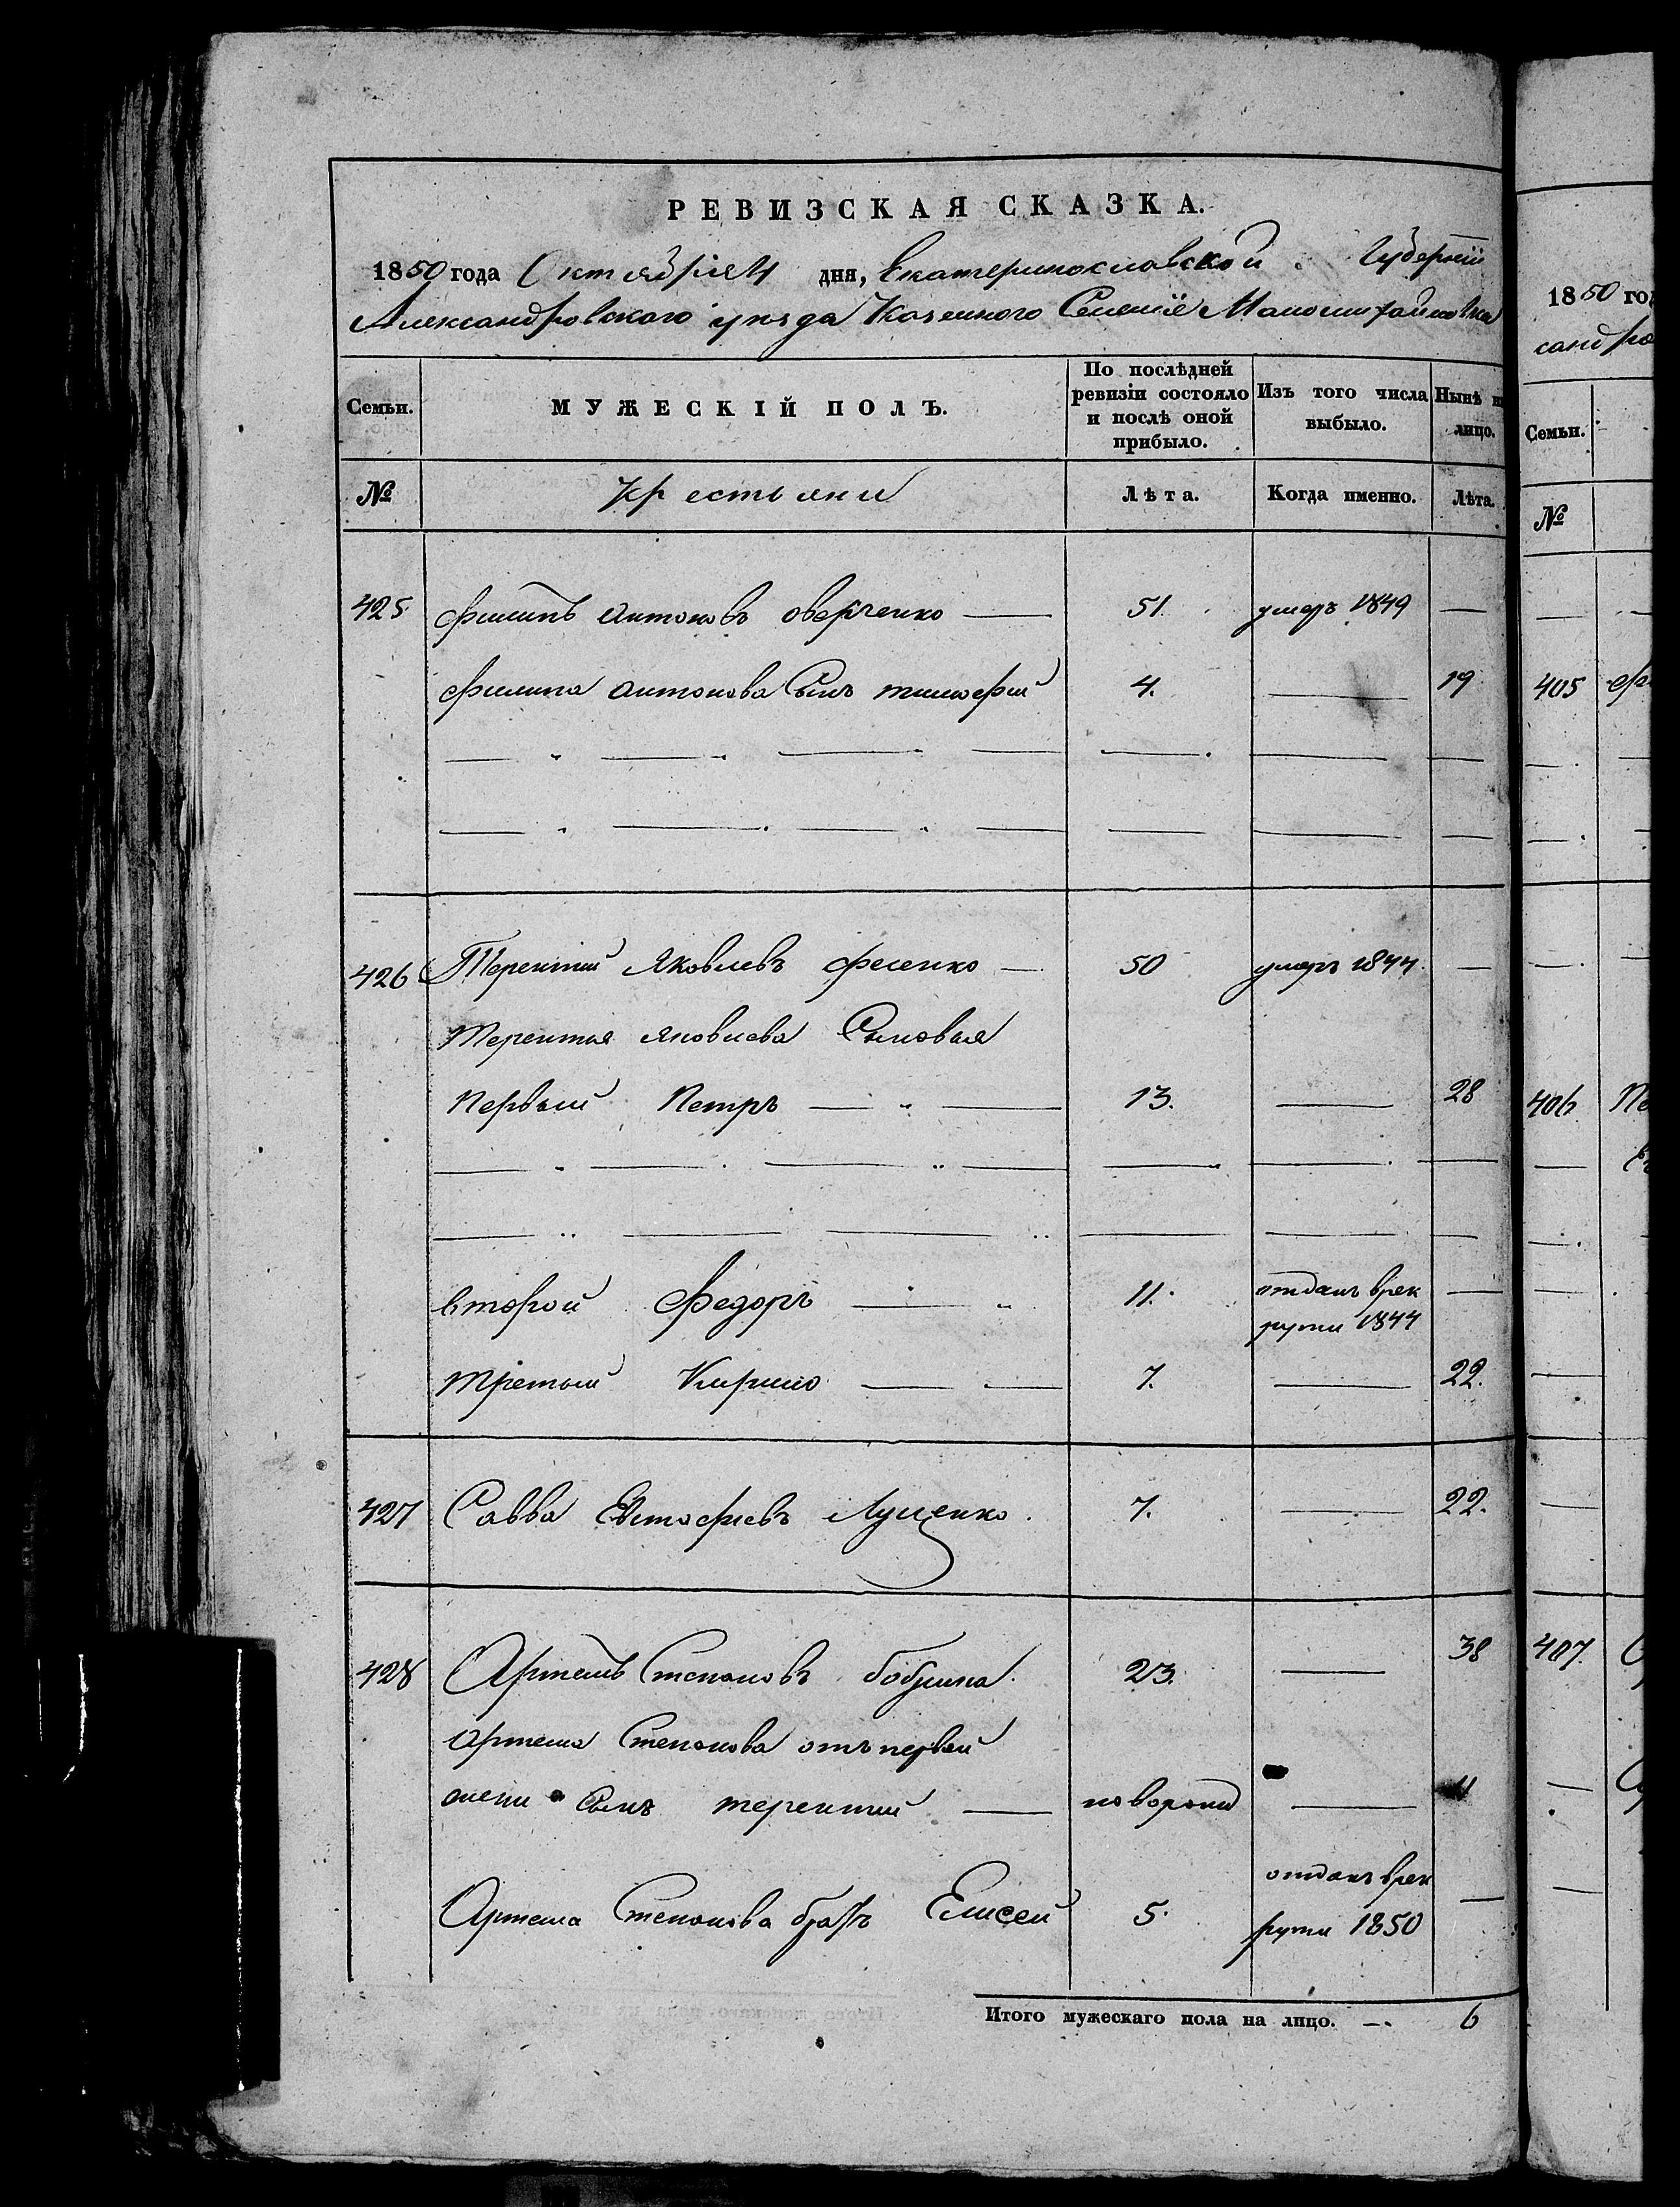 РЕВИЗСКАЯ СКАЗКА.
1850 года Октября 4 дня, Екатеринославской Губернїи
Александровского уезда Казенного Селенїе
Семьи. МУЖЕСКІЙ ПОЛЪ. По послѣдней ревизіи состояло и послѣ оной прибыло. Изъ того числа выбыло. Нынѣ лицо.
№ Крестьяни Лѣта. Когда именно. Лѣта.
425 Филипъ Антоновъ Оверченко 51. умеръ 1849 —
Филипа Антонова Сынъ тимофий 4. — 19
426 Терентий Яковлевъ Фесенко — 50 умеръ 1844. —
Терентия Яковлева Сыновья
Первый Петръ — 13. — 28
второй Федоръ — 11. отданъ врек —
рути 1844
третьий Кирило — 7. — 22.
427 Савва Евтофиевъ Луценко. 7. — 22.
428 Артемъ Степановъ 23. — 38
Артема Степанова отъ первой
жени Сынъ терентий — новорожд — 11
отданъ врек
Артема Степанова братъ Елисей 5. рути 1850 —
Итого мужескаго пола на лицо. — 6
1850 год
сандро
Семьи.
№
405
406
407